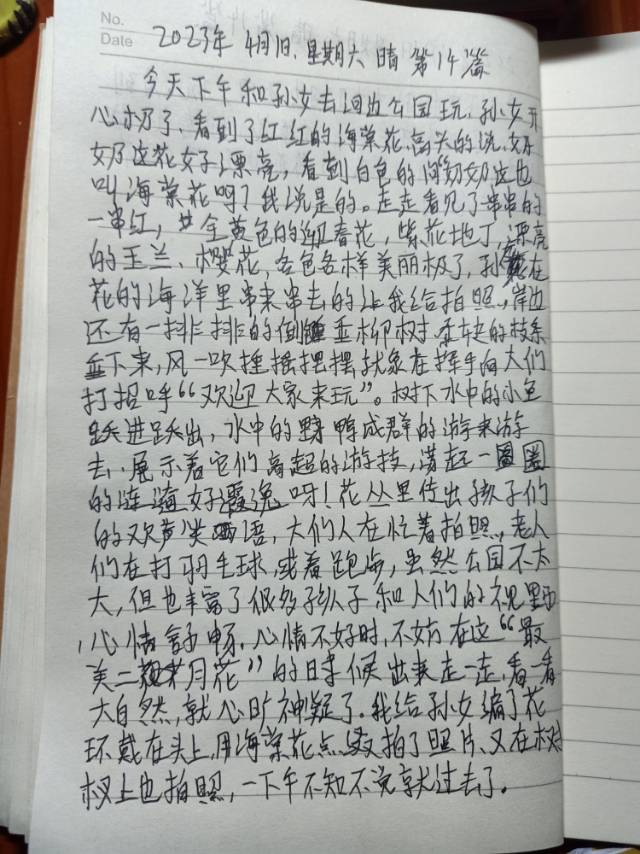 No.
Date 2023年4月1日,星期六 晴 第14篇
今天下午和孙女去河边公园玩,孙女开
心极了、看到了红红的海棠花,高兴的说,奶
奶这花女子漂亮,看到白色的问奶奶这也
叫海棠花吗?我说是的。走走看见了一串串的
一串红,廿全黄色的迎春花,紫花地丁,漂亮
的玉兰、樱花,各色各样美丽极了,孙女在
花的海洋里串来串去的让我给拍照,岸边
还有一排排的倒垂柳树,柔软的枝条
垂下来,风一吹摇摇摆摆,就象在挥手向大们
打招呼“欢迎大家来玩”。树下水中的小鱼
跃进跃出,水中的野鸭成群的游来游
去,展示着它们高超的游技,荡起一圈圈
的涟漪好漂逸呀!花丛里传出孩子们
的欢声笑语,大们人在忙着拍照,老人
们在打羽毛球,或着跑步,虽然公园不太
大,但也丰富了很多孩子和人们的视野
心情舒畅,心情不好时,不妨在这“最
美二月花”的时候出来走一走,看一看
大自然,就心旷神疑了。我给孙女编了花
环戴在头上,用海棠花点缀拍了照片,又在树
杈上也拍照,一下午不知不觉就过去了。